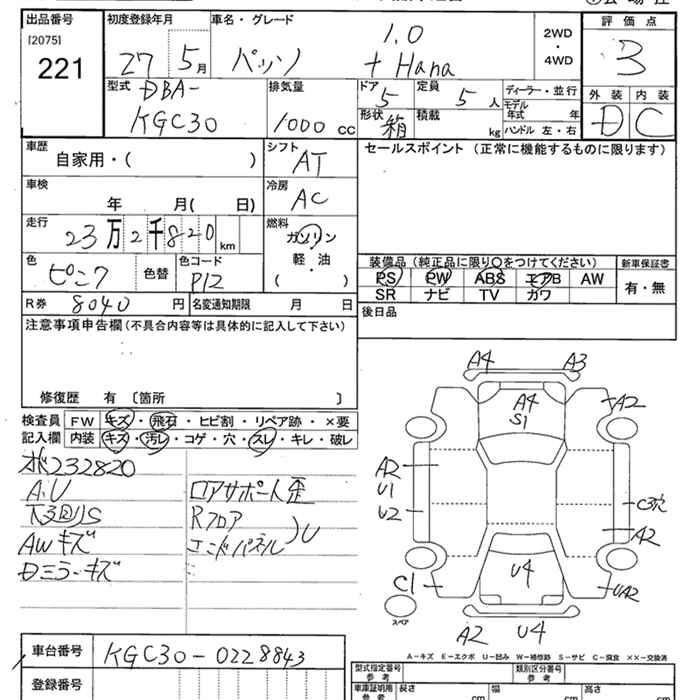 出品番号
[2075]
221
初度登録年月
27 5月
車名・グレード
1.0
パッソ + Hana
2WD
・
4WD
評価点
3
外装 内装
D C
型式
DBA-
KGC30
排気量
1000 CC
ドア
5
定員
5 人
形状
箱
積載
kg
ディーラー・並行
モデル
年式 年
ハンドル 左・右
車歴
自家用・( )
シフト
AT
セールスポイント (正常に機能するものに限ります)
車検
年 月( 日)
冷房
AC
走行
23万2千820 km
燃料
ガソリン
軽・油
( )
色
ピンク 色替
色コード
P12
装備品 (純正品に限り○をつけてください)
新車保証書
PS PW ABS エアB AW
有・無
SR ナビ TV カワ
R券 8040 円
名変通知期限 月 日
後日品
注意事項申告欄 (不具合内容等は具体的に記入して下さい)
修復歴 有 〔箇所 〕
検査員
記入欄
FW キズ・飛石・ヒビ割・リペア跡・×要
内装 キズ・汚レ・コゲ・穴・スレ・キレ・破レ
232820
A.U
下回りS
AWキズ
Dミラーキズ
ロアサポート歪
Rフロア
エンドパネル )U
A4 A3
A4
S1
A2
A2
U1
U2
C3穴
A2
C1
U4
UA2
スペア
A2 U4
A-キズ E-エクボ U-凹み W-補修跡 S-サビ C-腐食 XX-交換済
車台番号
KGC30-0228843
登録番号
型式指定番号
参考
類別区分番号
参考
車庫証明用
参考
長さ cm
幅 cm
高さ cm